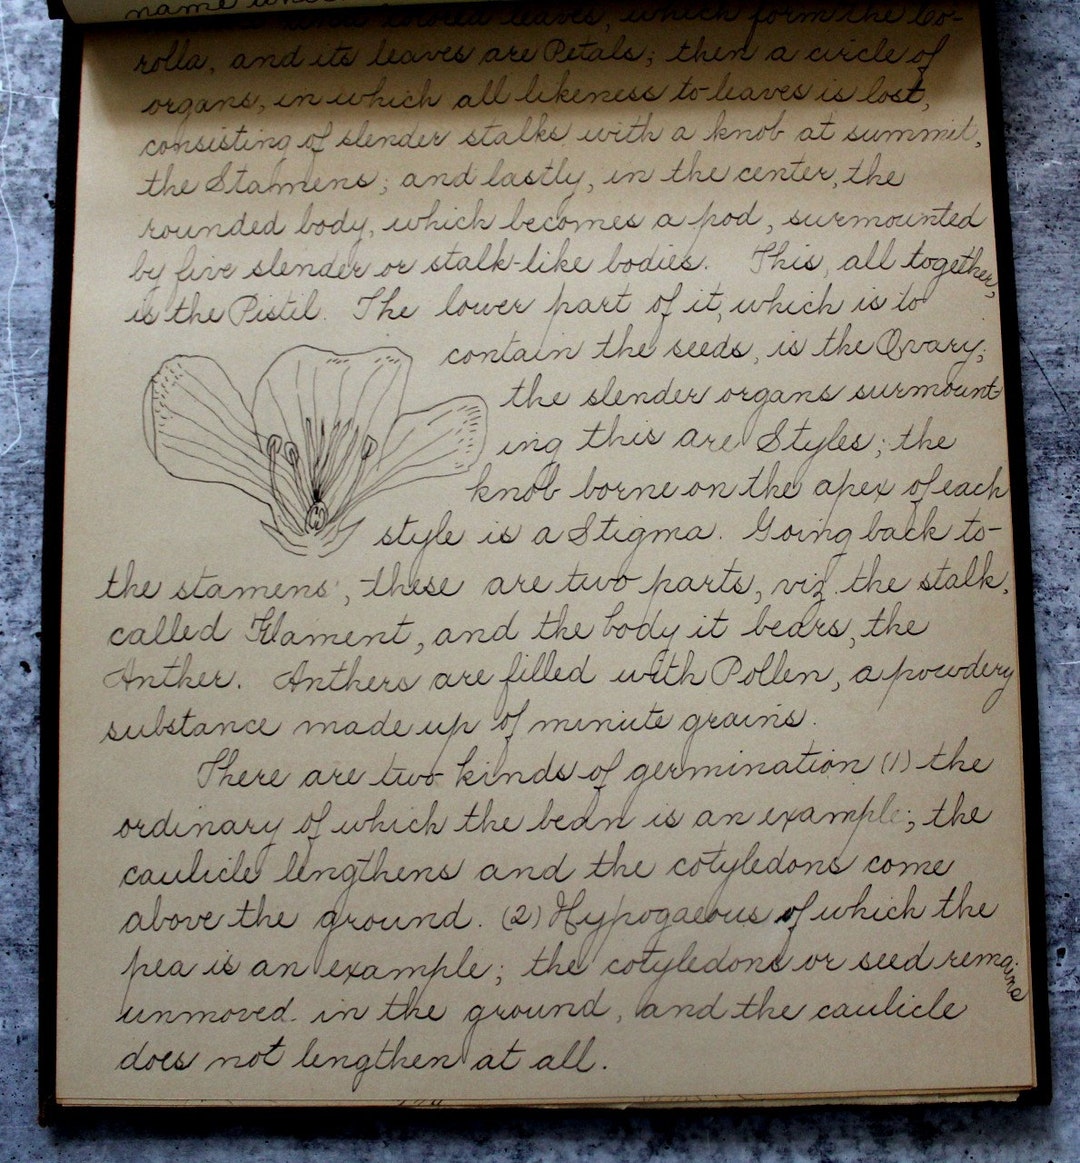 name
and colored leaves, which form the Co-
rolla, and its leaves are Petals; then a circle of
organs, in which all likeness to leaves is lost,
consisting of slender stalks with a knob at summit,
the Stamens; and lastly, in the center, the
rounded body, which becomes a pod, surmounted
by five slender or stalk-like bodies. This, all together,
is the Pistil. The lower part of it, which is to
contain the seeds, is the Ovary;
the slender organs surmount-
ing this are Styles; the
knob borne on the apex of each
style is a Stigma. Going back to
the stamens; these are two parts, viz. the stalk,
called Filament, and the body it bears, the
Anther. Anthers are filled with Pollen, a powdery
substance made up of minute grains.
There are two kinds of germination (1) the
ordinary of which the bean is an example; the
caulicle lengthens and the cotyledons come
above the ground. (2) Hypogaeous of which the
pea is an example; the cotyledons or seed remains
unmoved in the ground, and the caulicle
does not lengthen at all.